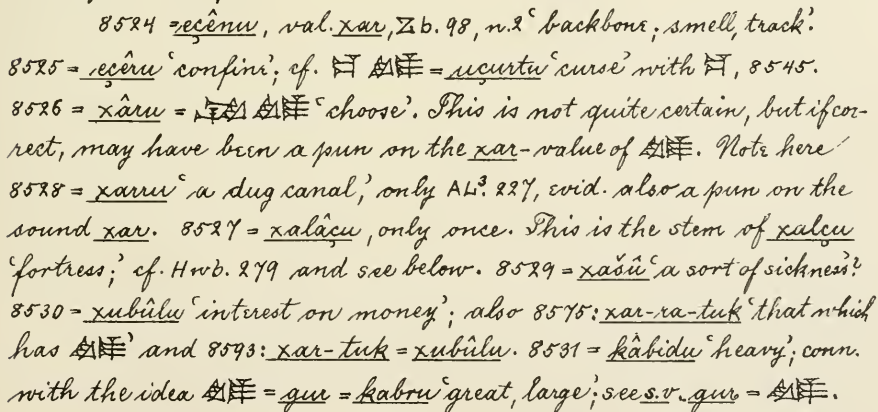 8524 = eçênu, val. xar, Zb. 98, n. 2 ‘backbone; smell, track’.
8525 = eçêru ‘confine’; cf. 𒄑 𒄯 = uçurtu ‘curse’ with 𒄑, 8545.
8526 = xâru = 𒄯 ‘choose’. This is not quite certain, but if cor-
rect, may have been a pun on the xar-value of 𒄯. Note here
8528 = xarru ‘a dug canal,’ only AL³. 227, evid. also a pun on the
sound xar. 8527 = xalâçu, only once. This is the stem of xalçu
‘fortress;’ cf. Hwb. 279 and see below. 8529 = xašû ‘a sort of sickness?’
8530 = xubûlu ‘interest on money’; also 8575: xar-ra-tuk ‘that which
has 𒄯’ and 8593: xar-tuk = xubûlu. 8531 = kâbidu ‘heavy’; conn.
with the idea 𒄯 = gur = kabru ‘great, large’; see s.v. gur = 𒄯.